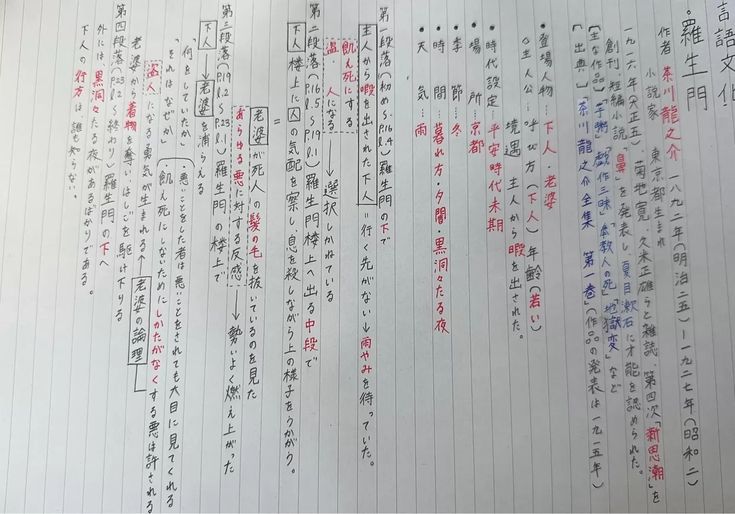 言語文化
・羅生門
作者 茶川龍之介 一八九二年(明治二五)ー一九二七年(昭和二)
小説家 東京都生まれ
一九一六年(大正五) 菊地寛・久米正雄らと雑誌・第四次「新思潮」を
創刊 短編小説「鼻」を発表し夏目漱石に才能を認められた。
〔主な作品〕「芋粥」「戯作三昧」「奉教人の死」「地獄変」など
〔出典〕「茶川龍之介全集 第一巻」(作品の発表は一九一五年)
・登場人物…下人・老婆
《主人公》呼び方(下人)年齢(若い)
境遇 主人から暇を出された。
・時代設定…平安時代末期
・場所…京都
・季節…冬
・時間…暮れ方・夕闇・黒洞々たる夜
・天気…雨
第一段落(初め〜P.16.l.4)羅生門の下で
主人から暇を出された下人=行く先がない→雨やみを待っていた。
飢え死にする
盗人になる
→選択しかねている
第二段落(P.16.l.5〜P.19.l.1)羅生門楼上へ出る中段で
下人 楼上に囚の気配を察し、息を殺しながら上の様子をうかがう。
=
老婆が死人の髪の毛を抜いているのを見た
あらゆる悪に対する反感→勢いよく燃え上がった
第三段落(P.19.l.2〜P.23.l.1)羅生門の楼上で
下人→老婆を捕らえる
「何をしていたか」
「それはなぜか」
・悪いことをした者は悪いことをされても大目に見てくれる
・飢え死にしないためにしかたがなくする悪は許される
盗人になる勇気が生まれる←老婆の論理
老婆から着物を奪い、はしごを駆け下りる
第四段落(P.23.l.2〜終わり)羅生門の下へ
外には黒洞々たる夜があるばかりである。
下人の行方は誰も知らない。